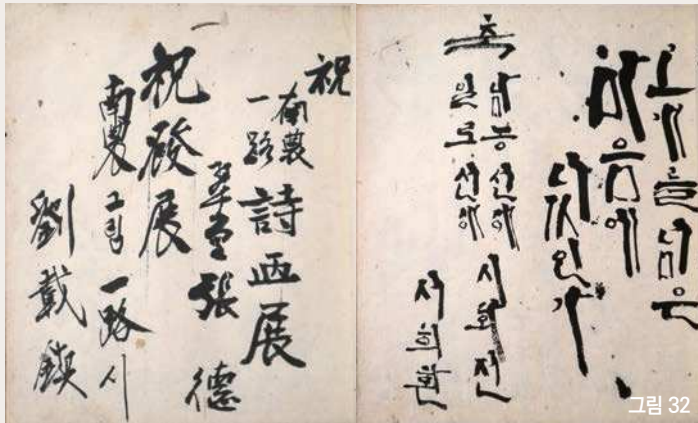 고개를 넘은
마음에
축
남농 선생
일로 선생
시화전
서희환
祝
南農
一路
詩画展
張德
祝發展
南農 그림 一路 시
劉載
그림 32